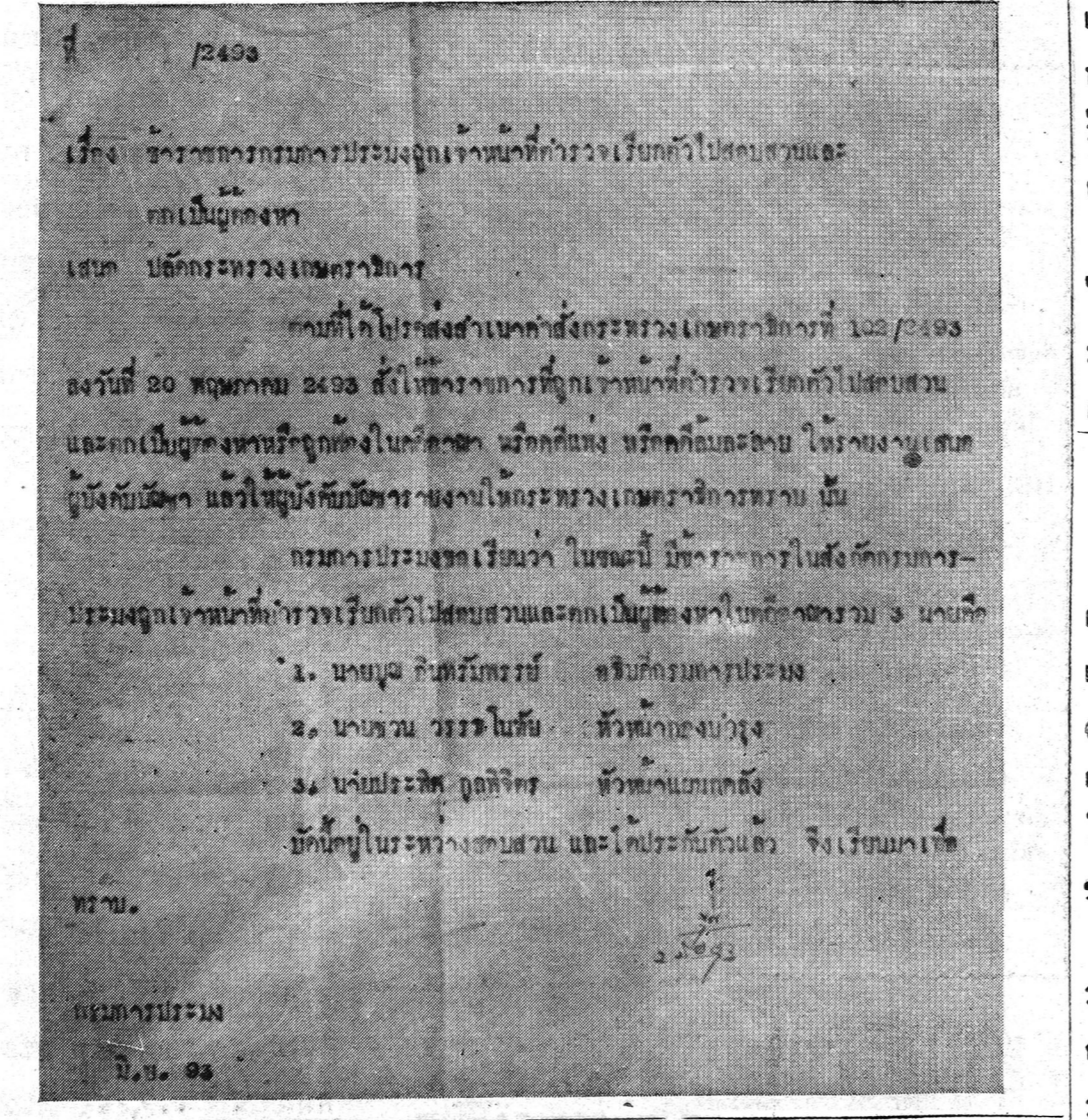 ที่ /2493
เรื่อง ข้าราชการกรมการประมงถูกเจ้าหน้าที่ตำรวจเรียกตัวไปสอบสวนและ
ตกเป็นผู้ต้องหา
เสนอ ปลัดกระทรวงเกษตราธิการ
ตามที่ได้โปรดส่งสำเนาคำสั่งกระทรวงเกษตราธิการที่ 102/2493
ลงวันที่ 20 พฤษภาคม 2493 สั่งให้ข้าราชการที่ถูกเจ้าหน้าที่ตำรวจเรียกตัวไปสอบสวน
และตกเป็นผู้ต้องหาหรือถูกฟ้องในคดีอาญา หรือคดีแพ่ง หรือคดีล้มละลาย ให้รายงานเสนอ
ผู้บังคับบัญชา แล้วให้ผู้บังคับบัญชารายงานให้กระทรวงเกษตราธิการทราบ นั้น
กรมการประมงขอเรียนว่า ในขณะนี้ มีข้าราชการในสังกัดกรมการ-
ประมงถูกเจ้าหน้าที่ตำรวจเรียกตัวไปสอบสวนและตกเป็นผู้ต้องหาในคดีอาญารวม 3 นายคือ
1. นายบุญ อินทรัมพรรย์ อธิบดีกรมการประมง
2. นายชวน วรรธโนทัย หัวหน้ากองบำรุง
3. นายประพิศ กูลพิจิตร หัวหน้าแผนกคลัง
บัดนี้อยู่ในระหว่างสอบสวน และได้ประกันตัวแล้ว จึงเรียนมาเพื่อ
ทราบ.
กรมการประมง
มิ.ย. 93